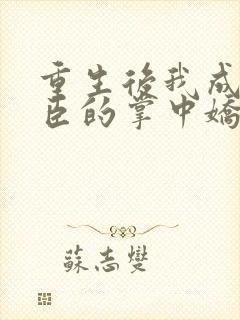 重生後我成
臣的掌中嬌
蘇志燮